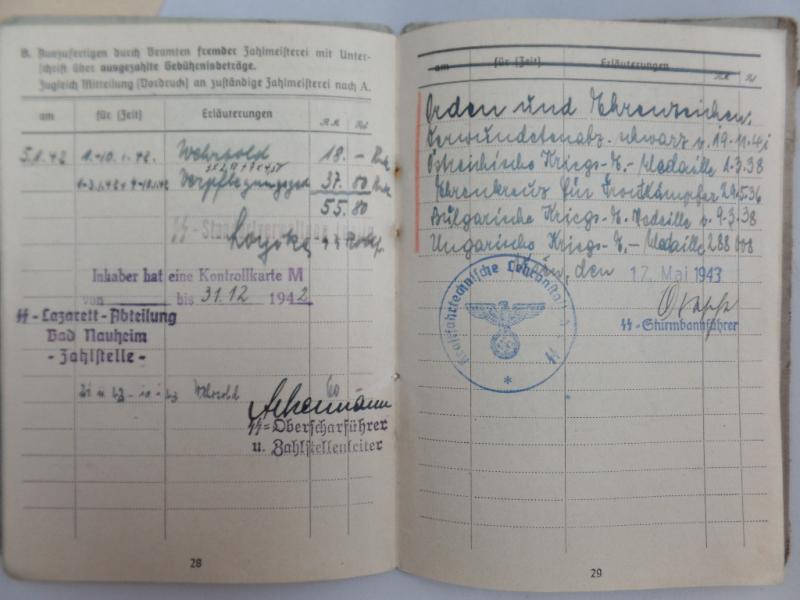 B. Auszufertigen durch Beamten fremder Zahlmeisterei mit Unter-
schrift über ausgezahlte Gebührnisbeträge.
Zugleich Mitteilung (Vordruck) an zuständige Zahlmeisterei nach A.
am für (Zeit) Erläuterungen RM Rpf
5.1.42 1.-10.1.42. Wehrsold 18.-
Verpflegungsgeld 37.80
55.80
Inhaber hat eine Kontrollkarte M
von bis 31.12 1942
SS-Lazarett-Abteilung
Bad Nauheim
-Zahlstelle-
Wehrsold 60
Ackermann
SS-Oberscharführer
u. Zahlstellenleiter
28
am für (Zeit) Erläuterungen
Orden und Ehrenzeichen.
Verwundetenabz. schwarz v. 19.11.41
Östreichische Kriegs-E.-Medaille 1.3.38
Ehrenkreuz für Frontkämpfer
Bulgarische Kriegs-E. Medaille v. 9.3.38
Ungarische Kriegs-E.-Medaille
den 17. Mai 1943
Kraftfahrtechnische Lehranstalt SS
SS-Sturmbannführer
29